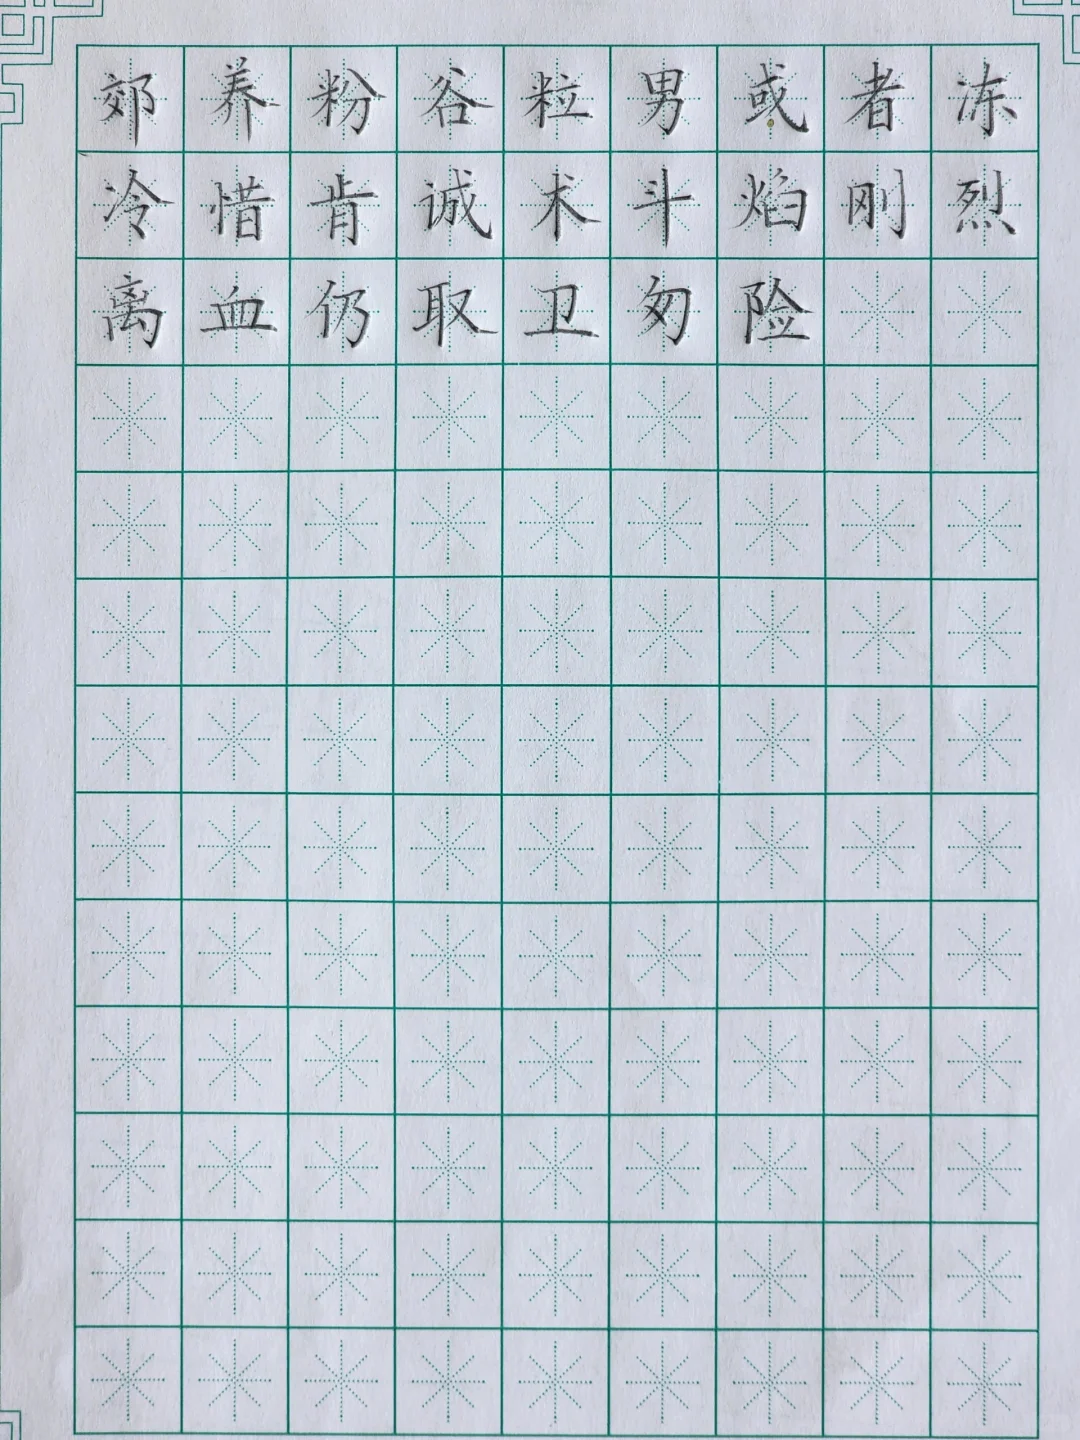 郊养粉谷粒男或者冻
冷惜肯诚术斗焰刚烈
离血仍取卫匆险